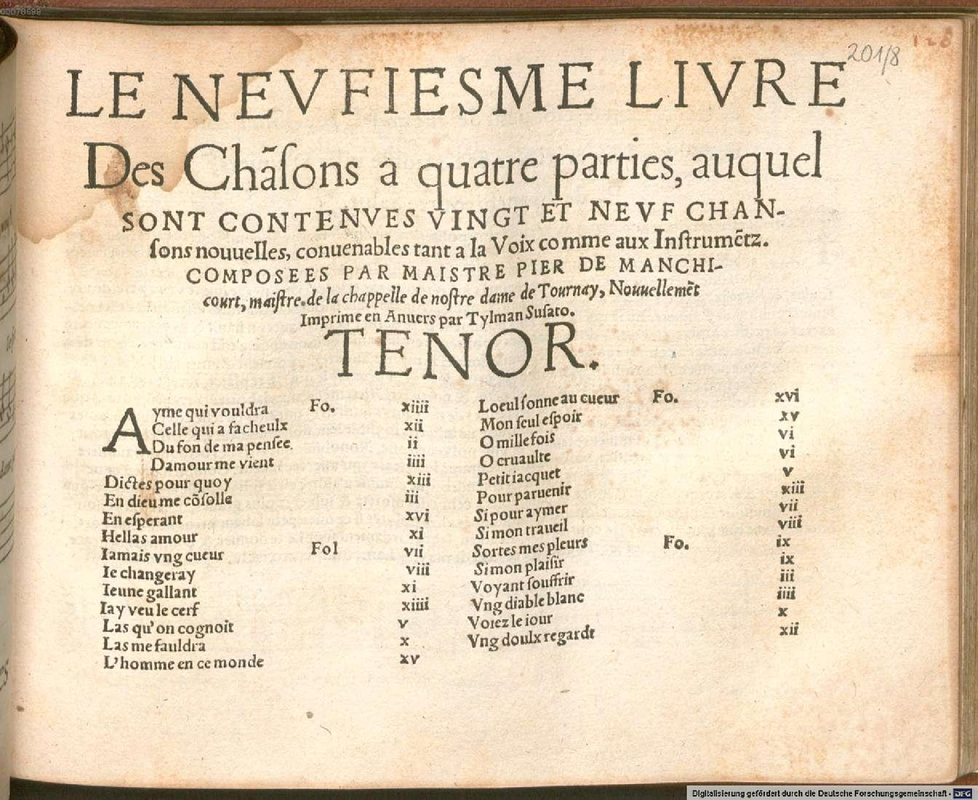 201/8
LE NEVFIESME LIVRE
Des Chãſons a quatre parties, auquel
SONT CONTENVES VINGT ET NEVF CHAN-
ſons nouuelles, conuenables tant a la Voix comme aux Inſtrumẽtz.
COMPOSEES PAR MAISTRE PIER DE MANCHI-
court, maiſtre de la chappelle de noſtre dame de Tournay, Nouuellemẽt
Imprime en Anuers par Tylman Suſato.
TENOR.
Ayme qui vouldra Fo. xiiii
Celle qui a facheulx xii
Du fon de ma penſee. ii
Damour me vient iiii
Dictes pour quoy xiii
En dieu me cõſolle iii
En eſperant xvi
Hellas amour xi
Iamais vng cueur Fol vii
Ie changeray viii
Ieune gallant xi
Iay veu le cerf xiiii
Las qu'on cognoit v
Las me fauldra x
L'homme en ce monde xv
Loeul ſonne au cueur Fo. xvi
Mon ſeul eſpoir xv
O mille fois vi
O cruaulte vi
Petit iacquet v
Pour paruenir xiii
Si pour aymer vii
Si mon traueil viii
Sortes mes pleurs Fo. ix
Si mon plaiſir ix
Voyant ſouffrir iii
Vng diable blanc iiii
Voiez le iour x
Vng doulx regardt xii
Digitalisierung gefördert durch die Deutsche Forschungsgemeinschaft - DFG